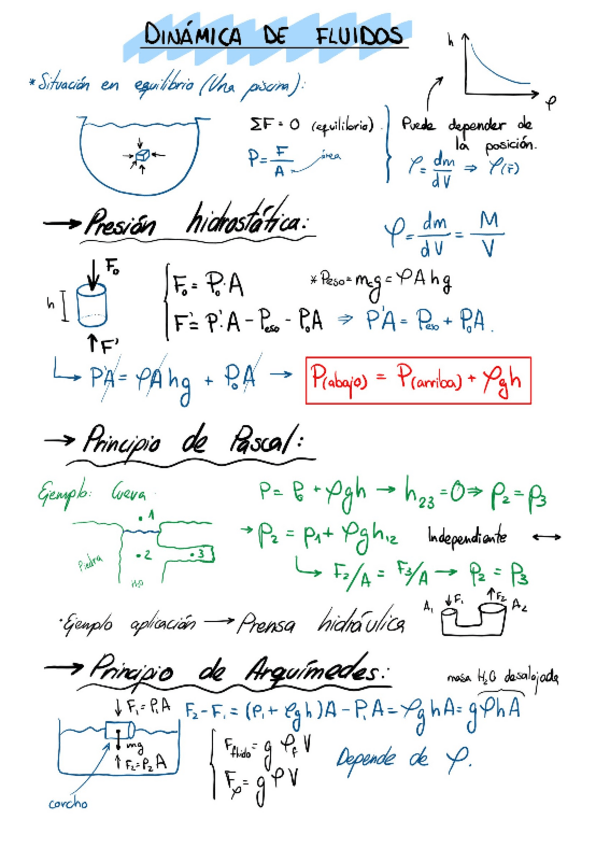 DINÁMICA DE FLUIDOS
h
φ
* Situación en equilibrio (Una piscina):
ΣF = 0 (equilibrio).
P = F/A área
Puede depender de
la posición.
φ = dm/dV ⇒ φ(r̄)
→ Presión hidrostática:
φ = dm/dV = M/V
F₀
h
F'
F₀ = P₀·A
* Peso = mg = φAhg
F' = P'·A − Peso − P₀A ⇒ P'A = Peso + P₀A.
↳ P'A = φAhg + P₀A → P(abajo) = P(arriba) + φgh
→ Principio de Pascal:
Ejemplo: Cueva
P = P₀ + φgh → h₂₃ = 0 ⇒ P₂ = P₃
• 1
• 2
• 3
Piedra
→ P₂ = P₁ + φgh₁₂ Independiente ↔
↳ F₂/A = F₃/A → P₂ = P₃
· Ejemplo aplicación → Prensa hidráulica
A₁ ↓F₁ ↑F₂ A₂
→ Principio de Arquímedes:
masa H₂O desalojada
↓ F₁ = P₁A
F₂ − F₁ = (P₁ + φgh)A − P₁A = φghA = gφhA
mg
↑ F₂ = P₂A
F fluido = g φ_f V
F_φ = g φ V
Depende de φ.
corcho